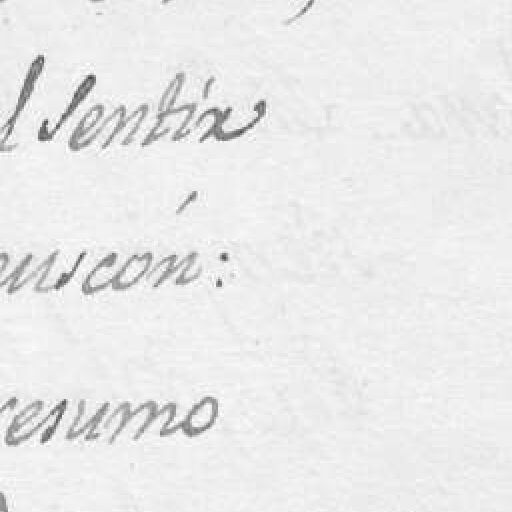 l Sentir
uscón:
resumo